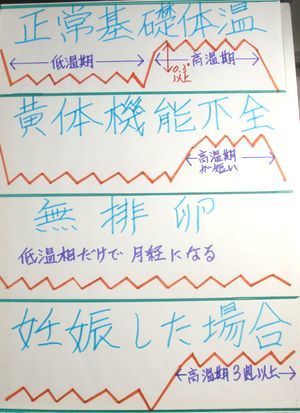 正常基礎体温
低温期 高温期
0.3°
以上
黄体機能不全
高温期
が短い
無排卵
低温相だけで 月経になる
妊娠した場合
高温期3週以上